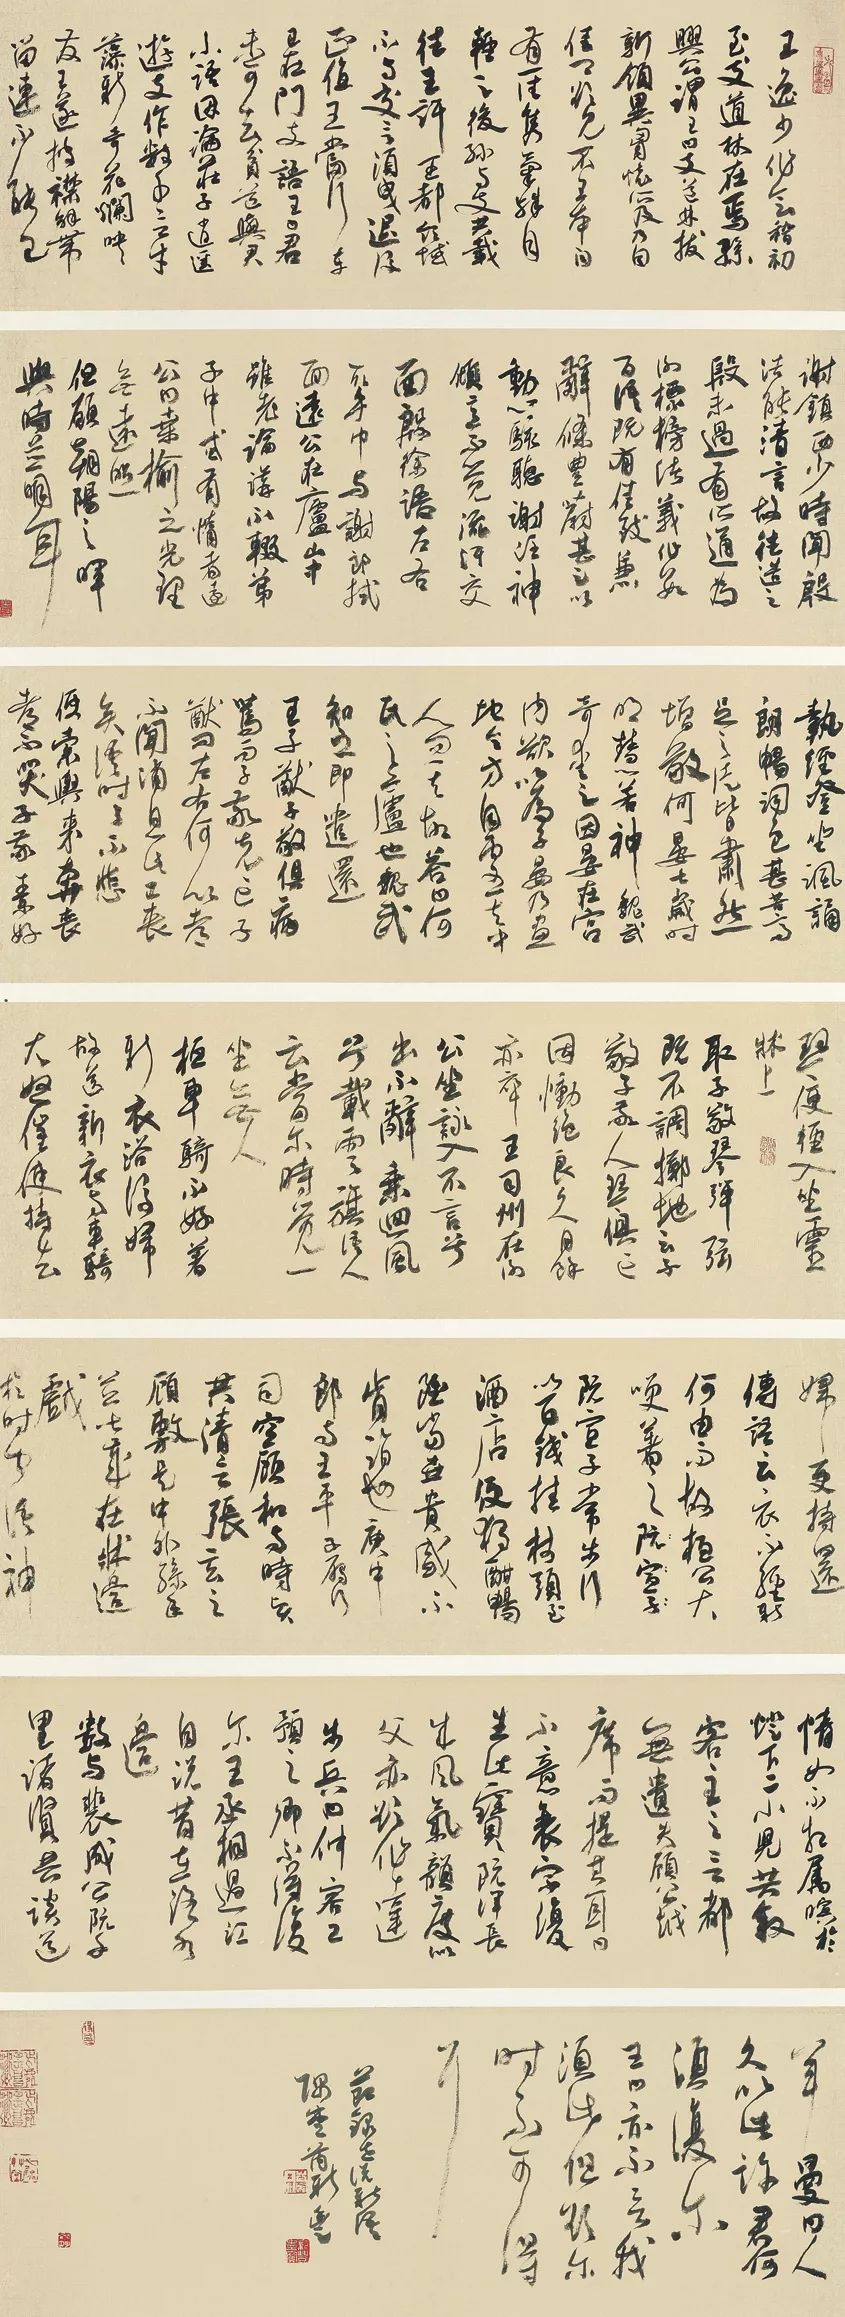 王逸少作會稽初
至支道林在焉孫
興公謂王曰支道林拔
新領異胸懷所及乃自
佳卿欲見不王本自
有一往雋氣殊自
輕之後孫與支共載
往王許王都領域
不與交言須臾支退後
正值王當行車
已在門支語王曰君
未可去貧道與君
小語因論莊子逍遙
遊支作數千言才
藻新奇花爛映
發王遂披襟解帶
留連不能已
謝鎮西少時聞殷
浩能清言故往造之
殷未過有所通為
謝標榜諸義作數
百語既有佳致兼
辭條豐蔚甚足以
動心駭聽謝注神
傾意不覺流汗交
面殷徐語左右
取手巾與謝郎拭
面遠公在廬山中
雖老論講不輟弟
子中或有惰者遠
公曰桑榆之光理
無遠照
但願朝陽之暉
與時並明耳
執經登坐諷誦
朗暢詞色甚苦高
足之徒皆肅然
增敬何晏七歲時
明慧若神魏武
奇愛之因晏在宮
內欲以為子晏乃畫
地令方自處其中
人問其故答曰何
氏之廬也魏武
知之即遣還
王子猷子敬俱病
篤而子敬先亡子
猷問左右何以都
不聞消息此已喪
矣語時了不悲
便索輿來奔喪
都不哭子敬素好
琴便徑入坐靈
牀上
取子敬琴彈弦
既不調擲地云子
敬子敬人琴俱亡
因慟絕良久月餘
亦卒王司州在謝
公坐詠入不言兮
出不辭乘回風
兮載雲旗語人
云當爾時覺一
坐無人
桓車騎不好著
新衣浴後婦
故送新衣與車騎
大怒催使持去
婦更持還
傳語云衣不經新
何由而故桓公大
笑著之阮宣子
阮宣子常步行
以百錢挂杖頭至
酒店便獨酣暢
雖當世貴盛不
肯詣也庾中
郎與王平子鴈行
司空顧和與時賢
共清言張玄之
顧敷是中外孫年
並七歲在牀邊
戲
於時聞語神
情如不相屬瞑於
燈下二小兒共敘
客主之言都
無遺失顧公越
席而提其耳曰
不意衰宗復
生此寶阮渾長
成風氣韻度似
父亦欲作達
步兵曰仲容已
預之卿不得復
爾王丞相過江
自說昔在洛水
邊
數與裴成公阮千
里諸賢共談道
羊曼曰人
久以此許卿何
須復爾
王曰亦不言我
須此但欲爾
時不可得
耳
節錄世說新語